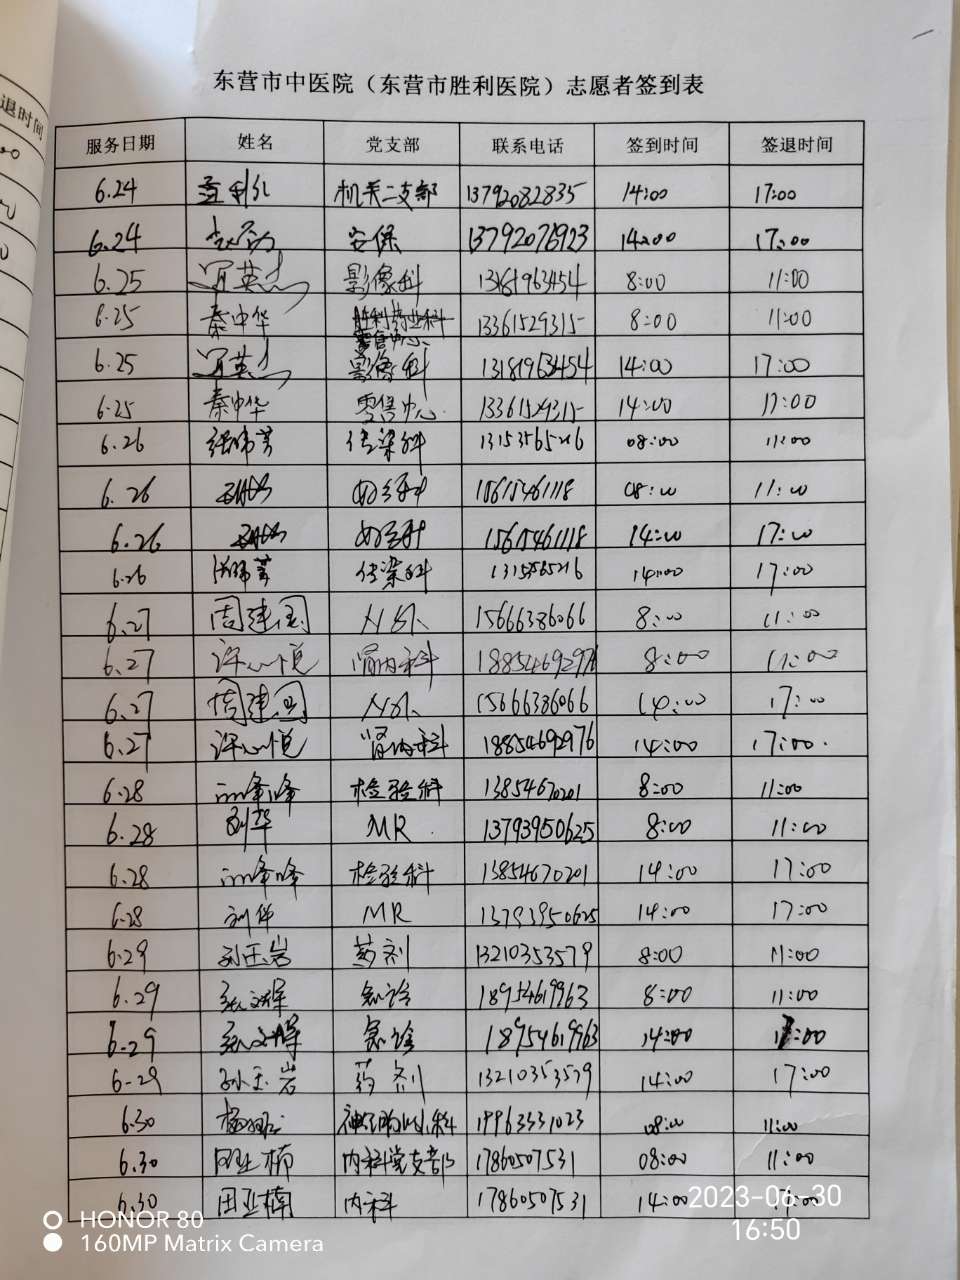 退时间
东营市中医院（东营市胜利医院）志愿者签到表
服务日期 姓名 党支部 联系电话 签到时间 签退时间
6.24 机关二支部 13792082835 14:00 17:00
6.24 安保 13792076923 14:00 17:00
6.25 影像科 13181963454 8:00 11:00
6.25 秦中华 胜利药业科 13361529315 8:00 11:00
零售中心
6.25 影像科 13181963454 14:00 17:00
6.25 秦中华 零售中心 13361529315 14:00 17:00
6.26 传染科 08:00 11:00
6.26 15615461118 08:00 11:00
6.26 15615461118 14:00 17:00
6.26 传染科 14:00 17:00
6.27 周建国 15666386066 8:00 11:00
6.27 许心悦 肾内科 18854692976 8:00 11:00
6.27 周建国 15666386066 14:00 17:00
6.27 许心悦 肾内科 18854692976 14:00 17:00.
6.28 检验科 13854670201 8:00 11:00
6.28 刘华 MR 13793950625 8:00 11:00
6.28 检验科 13854670201 14:00 17:00
6.28 MR 13793950625 14:00 17:00
6.29 孙玉岩 药剂 13210353579 8:00 11:00
6.29 张文辉 急诊 18954619963 8:00 11:00
6.29 张文辉 急诊 18954619963 14:00 17:00
6-29 孙玉岩 药剂 13210353579 14:00 17:00
6.30 19963331023 08:00 11:00
6.30 田亚楠 内科党支部 17860507531 08:00 11:00
6.30 田亚楠 内科 17860507531 14:00
2023-06-30
16:50
HONOR 80
160MP Matrix Camera